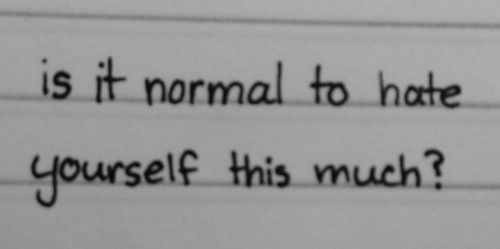 is it normal to hate
yourself this much?